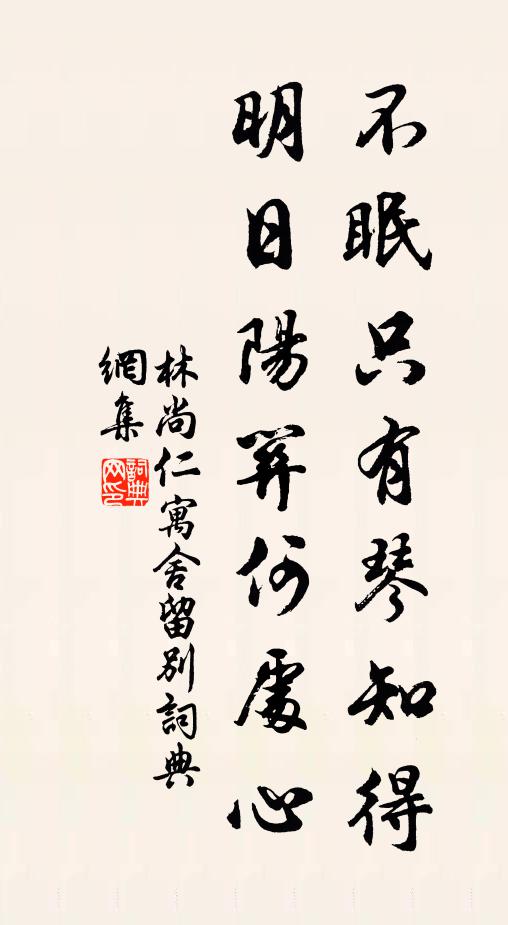 不眠只有琴知得
明日陽關何處心
林尚仁寓舍留別詞典
網集
詞典
网印